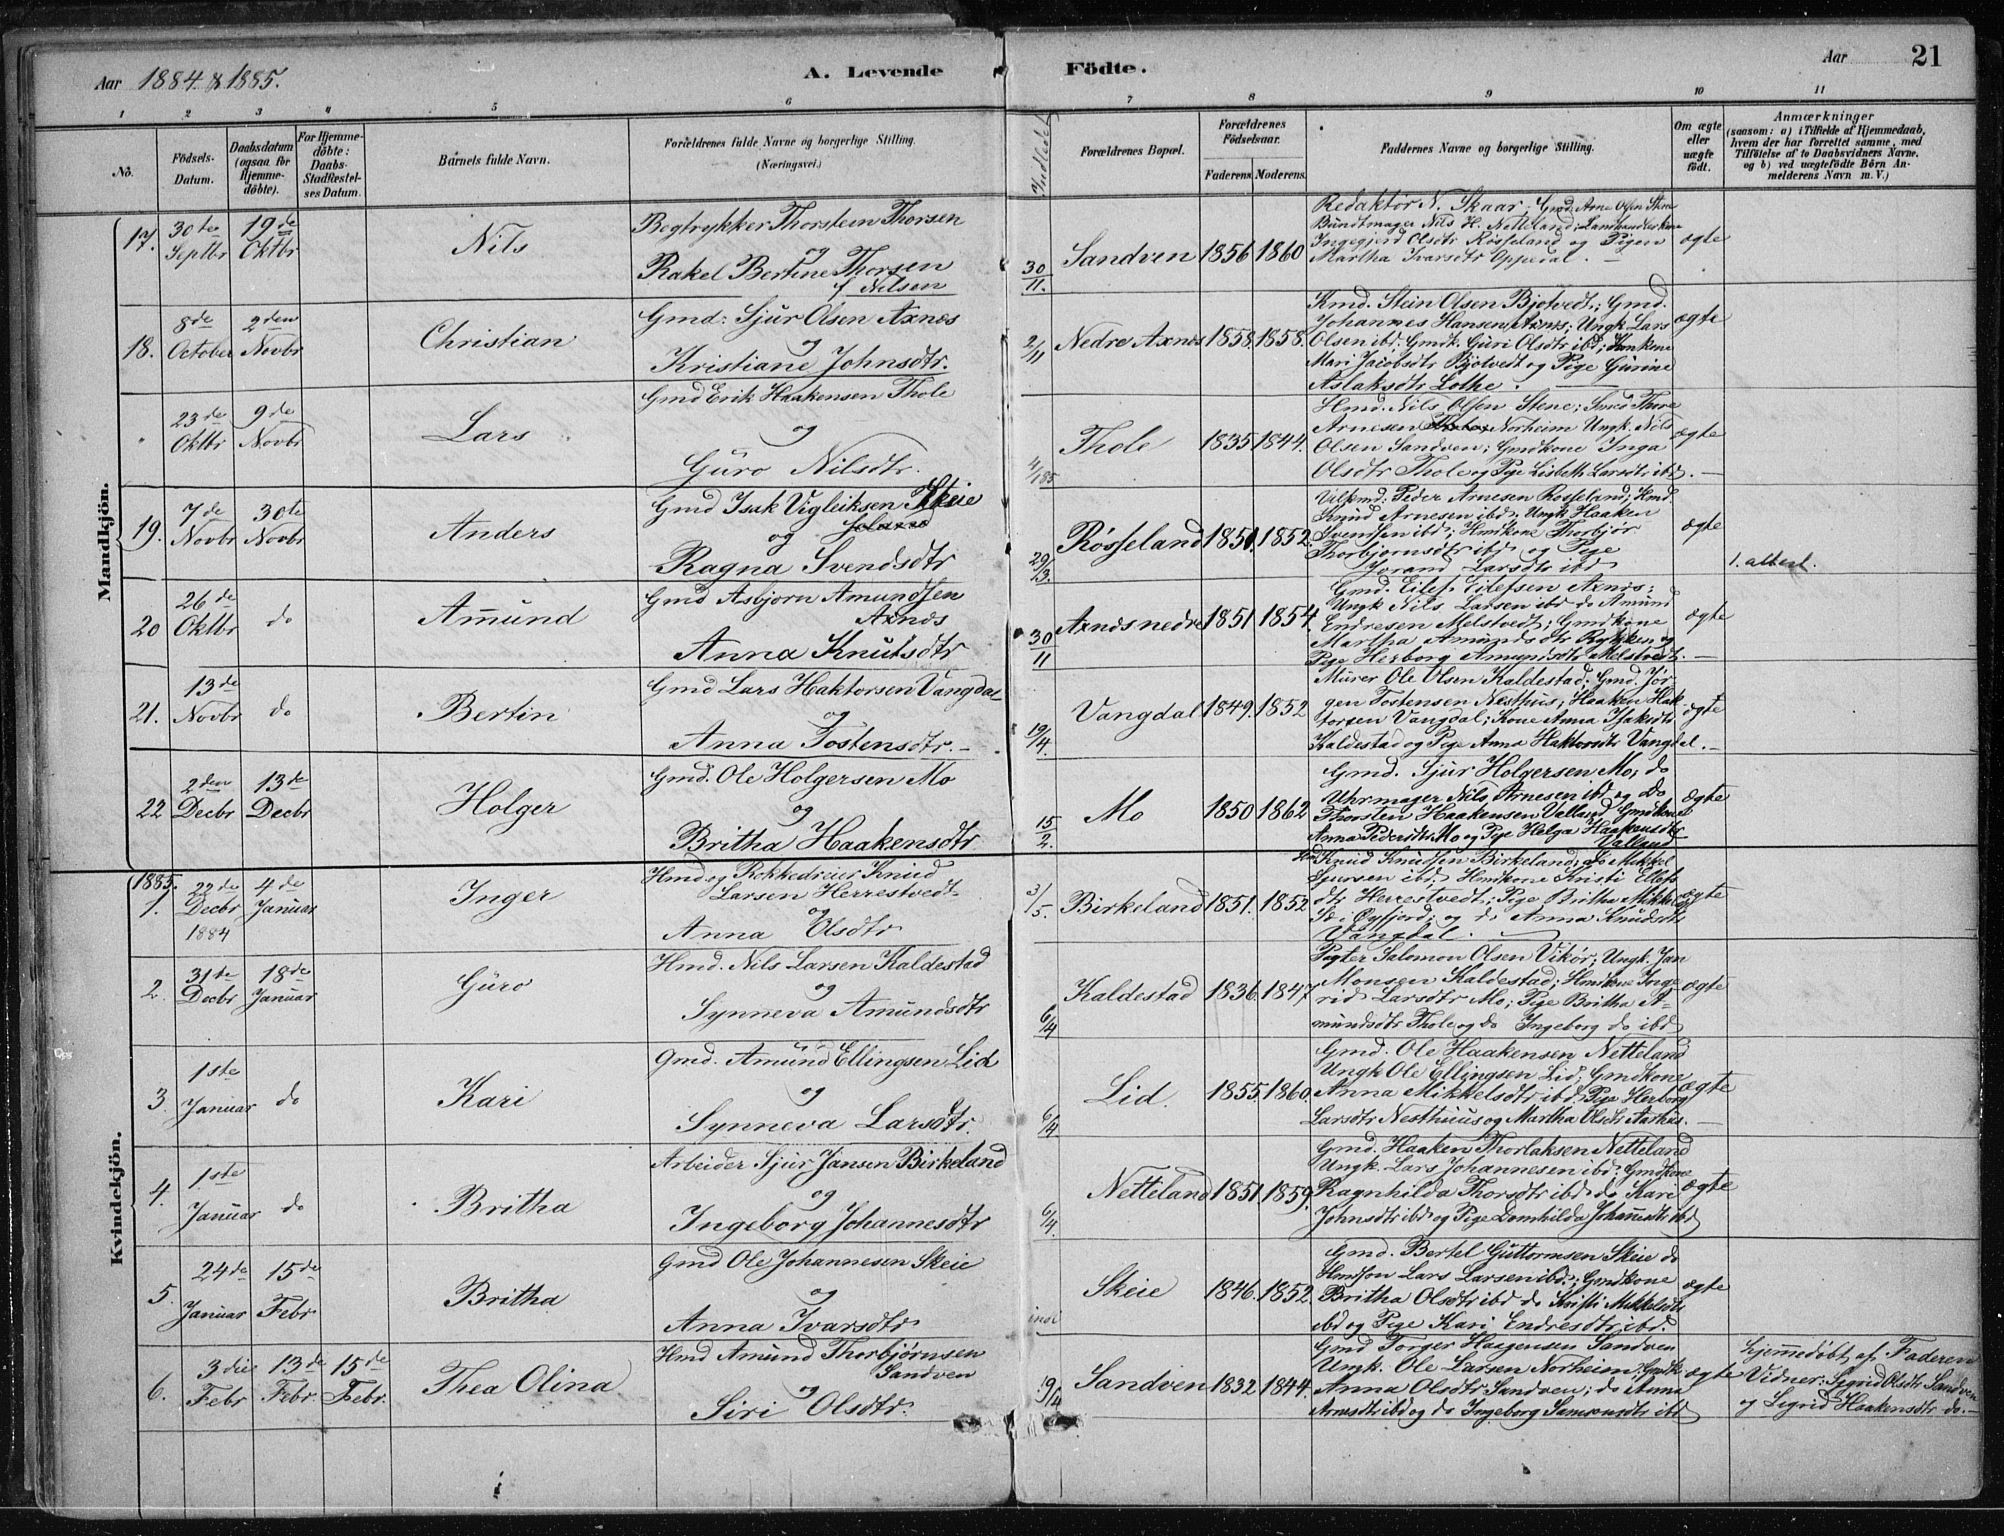 Aar 1884 & 1885.
A. Levende
Födte.
Aar
21
1 2 3 4 5 6 7 8 9 10 11
No.
Födsels-
Datum.
Daabsdatum
(ogsaa for
Hjemme-
döbte).
For Hjemme-
döbte:
Daabs-
Stadfæstel-
ses Datum.
Barnets fulde Navn.
Forældrenes fulde Navne og borgerlige Stilling.
(Næringsvei.)
Indledet
Forældrenes Bopæl.
Forældrenes
Födselsaar.
Faderens. Moderens.
Faddernes Navne og borgerlige Stilling.
Om ægte
eller
uægte
födt.
Anmærkninger
(saasom: a) i Tilfælde af Hjemmedaab,
hvem der har forrettet samme, med
Tilföielse af to Daabsvidners Navne,
og b) ved uægtefödte Börn An-
melderens Navn m. V.)
Mandkjön.
17. 30te Septbr
19de Oktbr
Nils
Bogtrykker Thorstein Thorsen
og
Rakel Bertine Thorsen
f. Nilsen
30/11.
Sandven 1856 1860
Redaktør N. Skaar; Gmd. Arne Olsen Stene
Bundtmager Nils H. Netteland; Landhandlerkone
Ingegjerd Olsdtr Røsseland og Pigen
Martha Ivarsdtr Oppedal. —
ægte
18. 8de October
2den Novbr
Christian
Gmd: Sjur Olsen Axnes
og
Kristiane Johnsdtr.
2/11
Nedre Axnes 1858. 1858.
Kmd. Stein Olsen Bjotvedt; Gmd.
Johannes Hansen Axnes; Ungk. Lars
Olsen ibd. Gmdk. Guri Olsdtr ibd; Kmkone
Mari Jacobsdtr Bjotvedt og Pige Gurine
Aslaksdtr Lothe.
ægte
" 23de Oktbr
9de Novbr
Lars
Gmd Erik Haakensen Thole
og
Guro Nilsdtr.
4/1 85
Thole 1835 1844.
Hmd. Nils Olsen Stene; Thore
Arnesen Norheim Ungk. Nils
Olsen Sandven; Gmdkone Inga
Olsdtr Thole og Pige Lisbeth Larsdtr ibd. —
ægte
19. 7de Novbr
30te Novbr
Anders
Gmd Isak Vigleiksen Skeie
og
Ragna Svendsdtr
29/3.
Røsseland 1851. 1852.
Peder Arnesen Rosseland; Hmd.
Knud Arnesen ibd; Ungk Haaken
Svendsen ibd; Hmdkone Thorbjør
Thorbjørnsdtr ibd og Pige
Jorand Larsdtr ibd
ægte
1. attest.
20 26de Oktbr
do
Amund
Gmd Asbjørn Amundsen
Axnes
Anna Knutsdtr
30/11
Axnes nedre 1851 1854.
Gmd. Eilef Eilefsen Axnes;
Ungk Nils Larsen ibd do Amund
Endresen Melstvedt; Gmdkone
Martha Amundsdtr Rykken og
Pige Herborg Amundsdtr Melstvedt. —
ægte
21. 13de Novbr
do
Bertin
Gmd Lars Haktorsen Vangdal
og
Anna Tostensdtr. —
19/4.
Vangdal 1849. 1852
Murer Ole Olsen Kaldestad; Gmd. Jør-
gen Tostensen Nesthus; Haaken Hak-
torsen Vangdal; Kone Anna Isaksdtr
Kaldestad og Pige Anna Haktorsdtr Vangdal. —
ægte
22 2den Decbr
13de Decbr
Holger
Gmd. Ole Holgersen Mo
og
Britha Haakensdtr.
15/2.
Mo 1850 1862
Gmd. Sjur Holgersen Mo, do
Uhrmager Nils Arnesen ibd og do
Thorsten Haakensen Valland Gmdkone
Anna Pedersdtr Mo og Pige Helga Haakensdtr
Valland
ægte
Kvindekjön.
1885.
1. 22de Decbr 1884
4de Januar
Inger
Hmd og Rokkedreier Knud
Larsen Herrestvedt
og
Anna Olsdtr
3/5.
Birkeland 1851. 1852
Knud Knudsen Birkeland; do Mikkel
Sjursen ibd. Hmdkone Kristi Ellefs
dtr Herrestvedt; Pige Britha Mikkels
dtr i Øyfjord; og do Anna Knudsdtr
Vangdal.
ægte
2. 31te Decbr
18de Januar
Guro
Hmd. Nils Larsen Kaldestad
og
Synneva Amundsdtr
6/4
Kaldestad 1836. 1847
Pigter Salomon Olsen Vikør; Ungk. Jan
Monsen Kaldestad; Hmdkone Inge
rid Larsdtr Mo; Pige Britha A-
mundsdtr Thole og do Ingeborg do ibd
ægte
3. 1ste Januar
do
Kari
Gmd. Amund Ellingsen Lid
og
Synneva Larsdtr.
6/4
Lid. 1855. 1860.
Gmd. Ole Haakensen Netteland
Ungk Ole Ellingsen Lid; Gmdkone
Anna Mikkelsdtr ibd. Pige Herborg
Larsdtr Nesthuus og Martha Olsdtr Aarhus. —
ægte
4. 1ste Januar
do
Britha
Arbeider Sjur Jansen Birkeland
og
Ingeborg Johannesdtr
6/4
Netteland 1851. 1859.
Gmd. Haaken Thorlaksen Netteland
Ungk. Lars Johannesen ibd. Gmdkone
Ragnhilda Thorsdtr ibd do Kari
Johnsdtr ibd og Pige Domhilda Johannesdtr ibd
ægte
5. 24de Januar
15de Febr
Britha
Gmd Ole Johannesen Skeie
og
Anna Ivarsdtr
Skeie 1846. 1852.
Gmd. Bertel Guttormsen Skeie do
Hmdson Lars Larsen ibd.; Gmdkone
Britha Olsdtr ibd do Kristi Mikkelsdtr
ibd og Pige Kari Endresdtr ibd.
ægte
6. 3die Febr
13de Febr.
15de Febr.
Thea Olina
Hmd Amund Thorbjørnsen
Sandven
og
Siri Olsdtr.
19/4
Sandven 1832 1844.
Gmd Torger Haagensen Sandven
Ungk. Ole Larsen Norheim; Gmdk
Anna Olsdtr Sandven; do Anna
Arnesdtr ibd og do Ingeborg Samsonsdtr ibd
ægte
Hjemmedøbt af Faderen
Vidner: Sigrid Olsdtr Sandven
og Sigrid Haakensdtr do. —